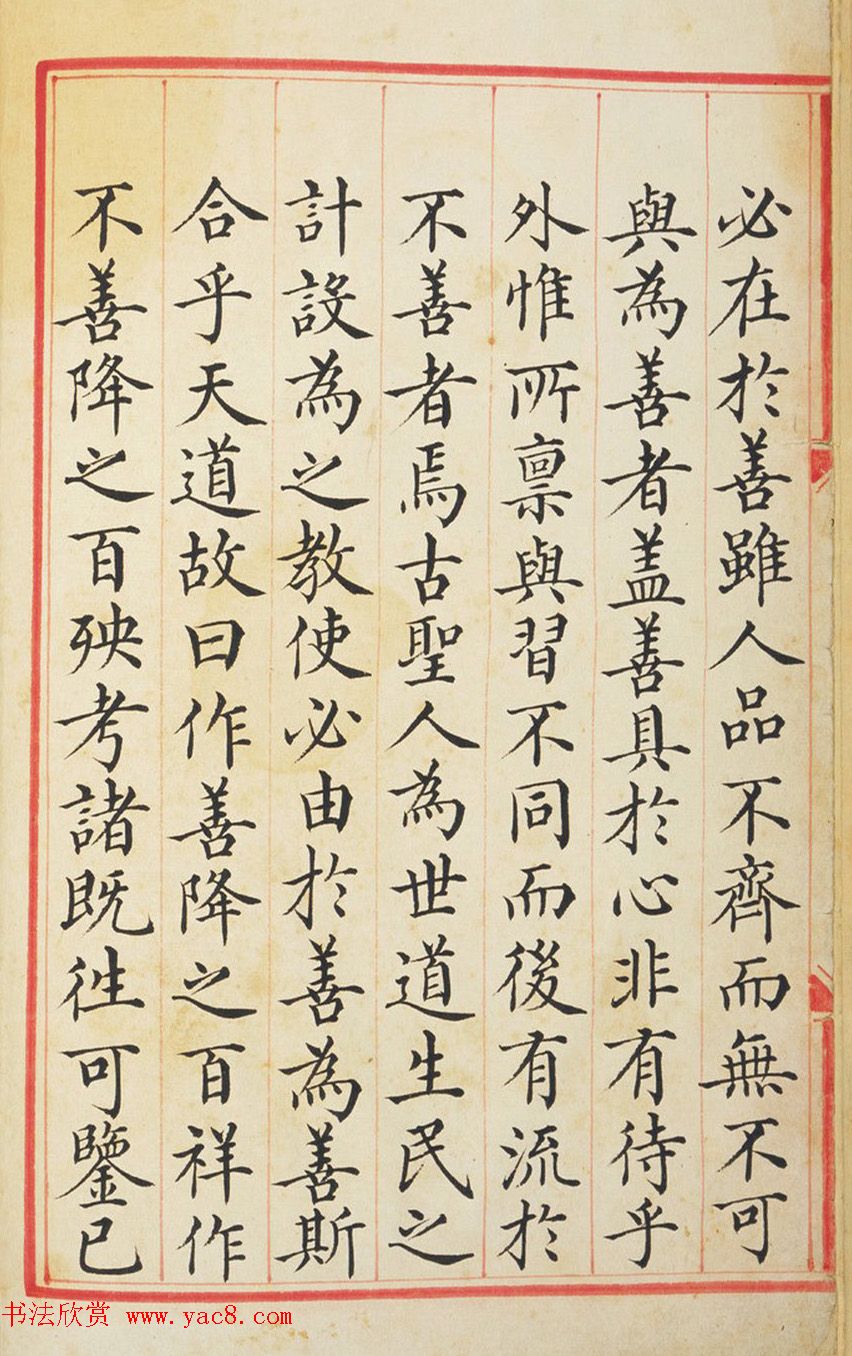 必在於善雖人品不齊而無不可
與為善者盖善具於心非有待乎
外惟所禀與習不同而後有流於
不善者焉古聖人為世道生民之
計設為之教使必由於善為善斯
合乎天道故曰作善降之百祥作
不善降之百殃考諸既徃可鑒已
书法欣赏 www.yac8.com